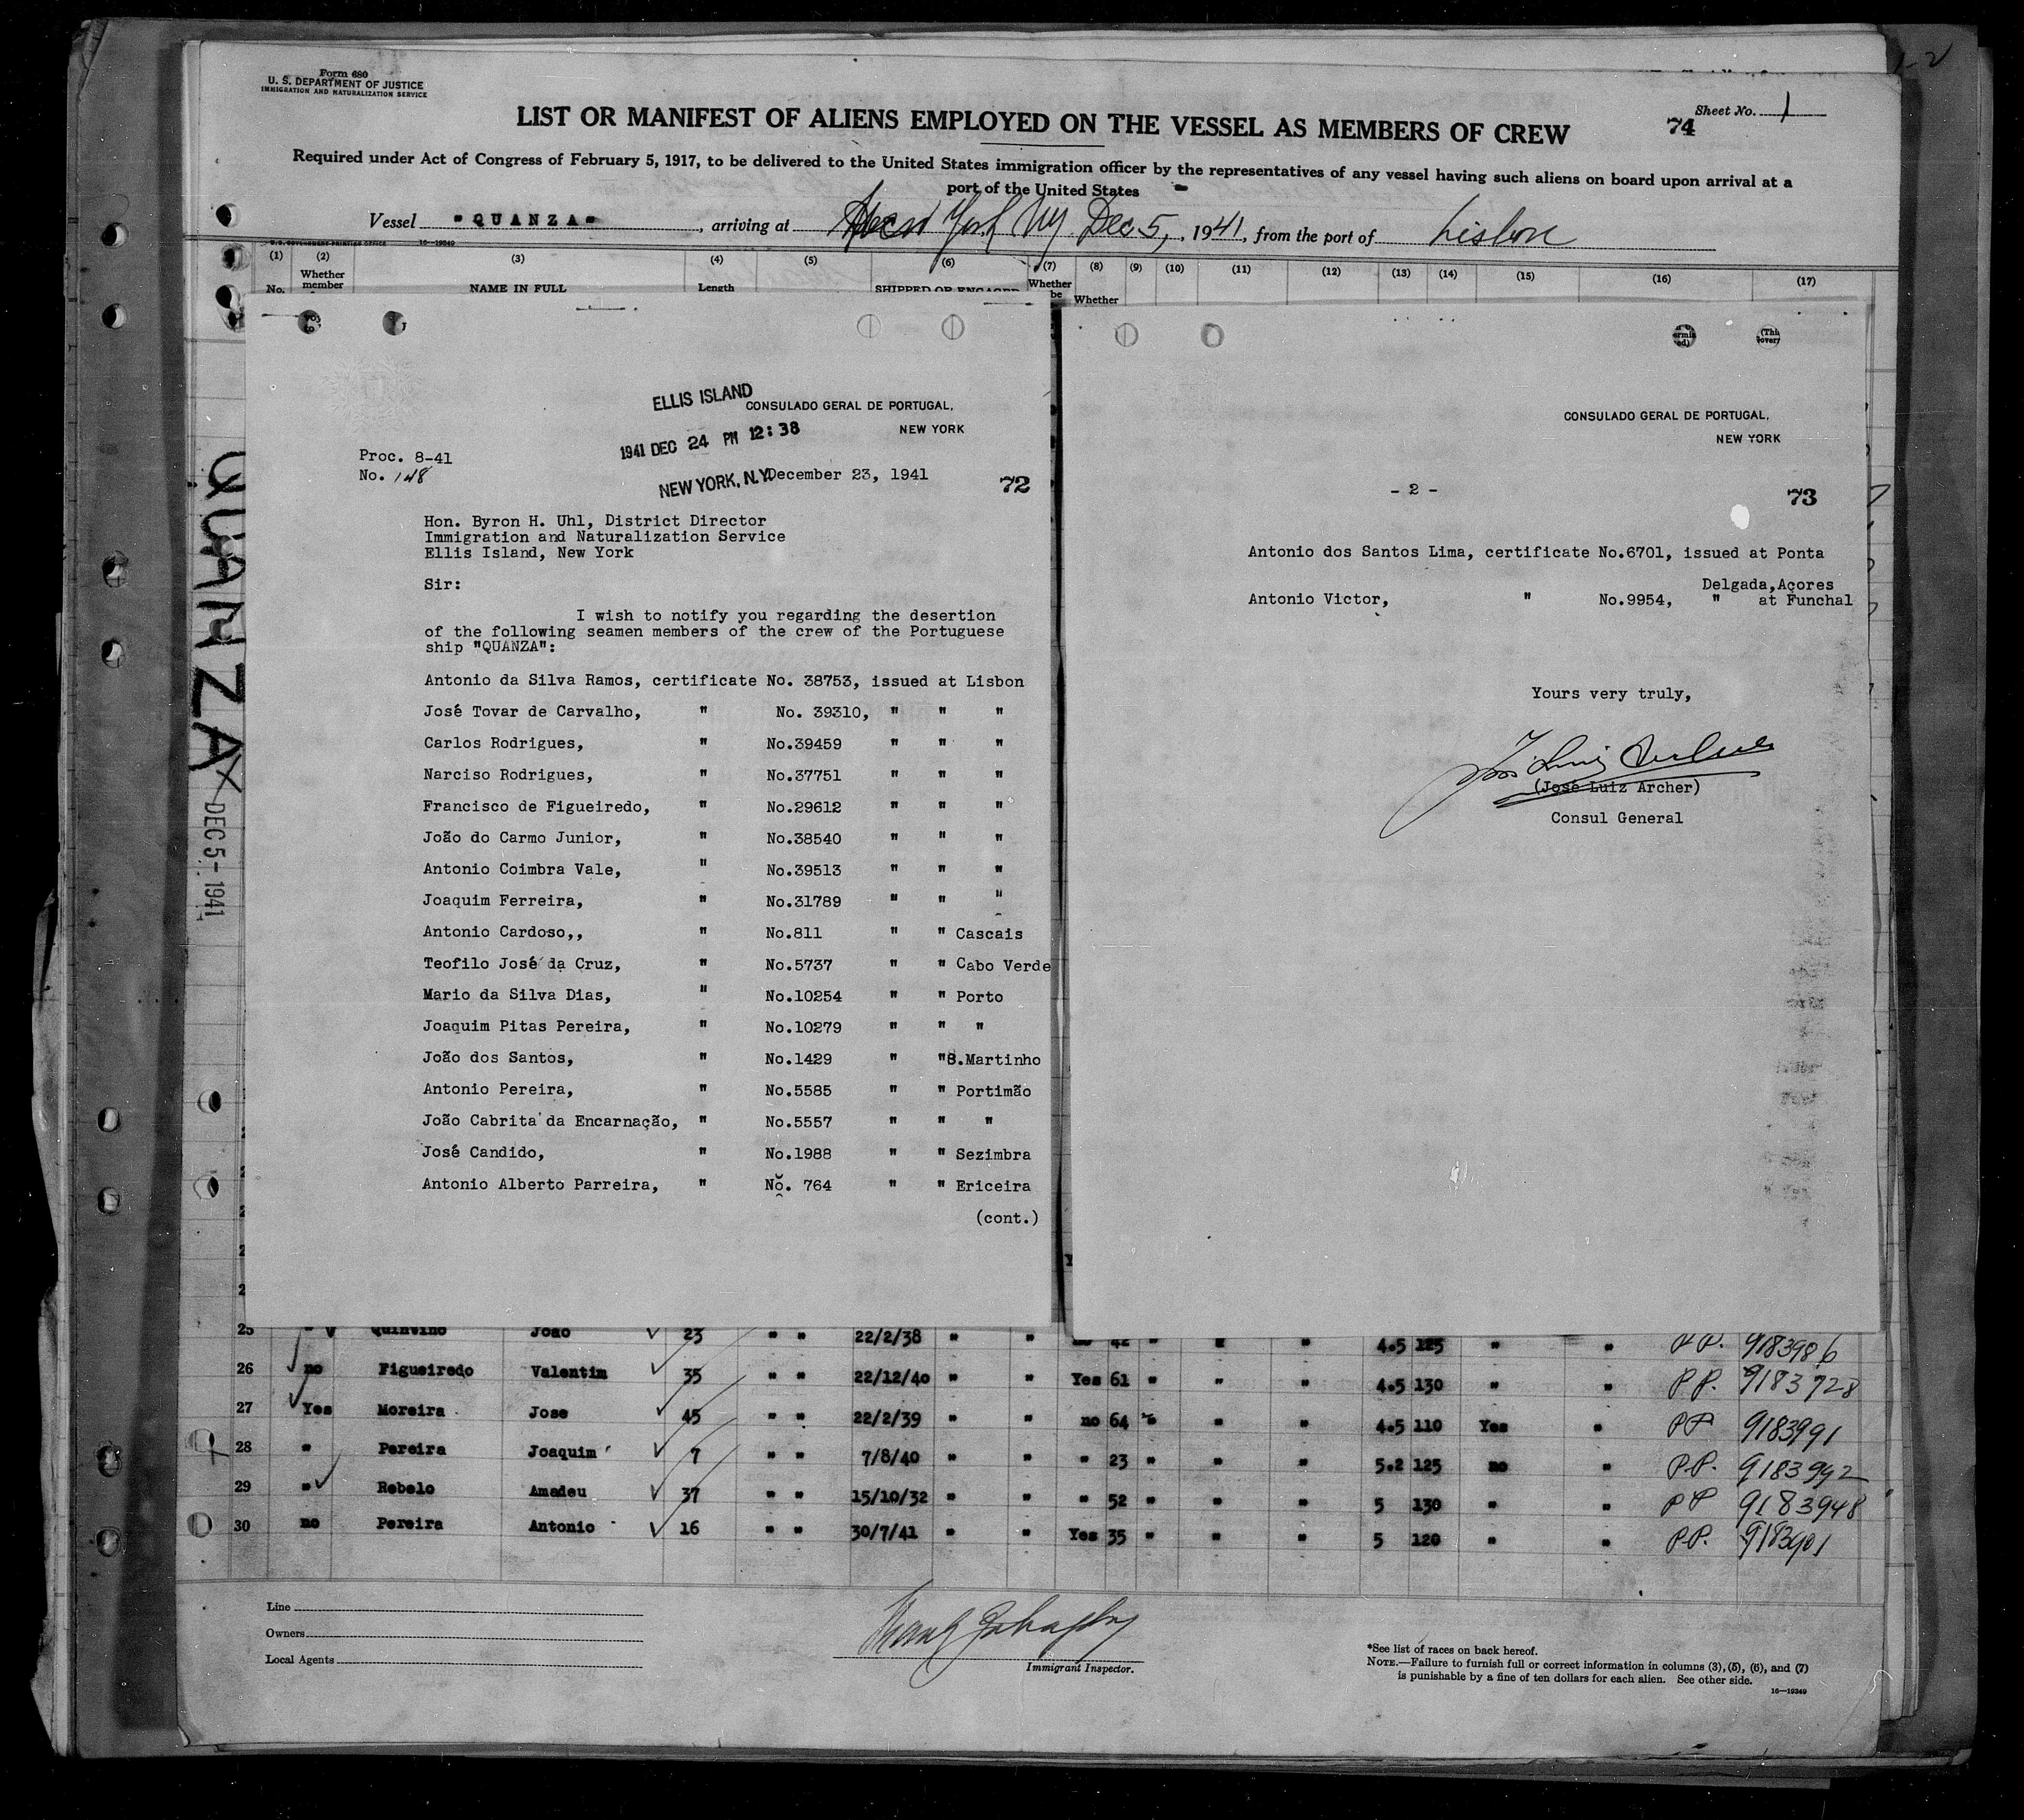 Form 680
U. S. DEPARTMENT OF JUSTICE
IMMIGRATION AND NATURALIZATION SERVICE
Sheet No. 1
74
LIST OR MANIFEST OF ALIENS EMPLOYED ON THE VESSEL AS MEMBERS OF CREW
Required under Act of Congress of February 5, 1917, to be delivered to the United States immigration officer by the representatives of any vessel having such aliens on board upon arrival at a
port of the United States
Vessel "QUANZA", arriving at New York NY. Dec 5, 1941, from the port of Lisbon
U. S. GOVERNMENT PRINTING OFFICE 16—19349
(1) (2) (3) (4) (5) (6) (7) (8) (9) (10) (11) (12) (13) (14) (15) (16) (17)
No. Whether member NAME IN FULL Length SHIPPED OR ENGAGED Whether be Whether
QUANZA
DEC 5 - 1941
ELLIS ISLAND
1941 DEC 24 PM 12:38
NEW YORK, N.Y.
CONSULADO GERAL DE PORTUGAL,
NEW YORK
Proc. 8-41
No. 148
December 23, 1941
72
Hon. Byron H. Uhl, District Director
Immigration and Naturalization Service
Ellis Island, New York
Sir:
I wish to notify you regarding the desertion
of the following seamen members of the crew of the Portuguese
ship "QUANZA":
Antonio da Silva Ramos, certificate No. 38753, issued at Lisbon
José Tovar de Carvalho, " No. 39310, " " "
Carlos Rodrigues, " No.39459 " " "
Narciso Rodrigues, " No.37751 " " "
Francisco de Figueiredo, " No.29612 " " "
João do Carmo Junior, " No.38540 " " "
Antonio Coimbra Vale, " No.39513 " " "
Joaquim Ferreira, " No.31789 " " "
Antonio Cardoso,, " No.811 " " Cascais
Teofilo José da Cruz, " No.5737 " " Cabo Verde
Mario da Silva Dias, " No.10254 " " Porto
Joaquim Pitas Pereira, " No.10279 " " "
João dos Santos, " No.1429 " "S.Martinho
Antonio Pereira, " No.5585 " " Portimão
João Cabrita da Encarnação, " No.5557 " " "
José Candido, " No.1988 " " Sezimbra
Antonio Alberto Parreira, " No. 764 " " Ericeira
(cont.)
CONSULADO GERAL DE PORTUGAL,
NEW YORK
- 2 -
73
Antonio dos Santos Lima, certificate No.6701, issued at Ponta
Delgada,Açores
Antonio Victor, " No.9954, " at Funchal
Yours very truly,
(José Luiz Archer)
Consul General
25 " Quintino Joao 23 " " 22/2/38 " " no 42 " " " 4.5 125 " " P.P. 9183986
26 no Figueiredo Valentim 35 " " 22/12/40 " " Yes 61 " " " 4.5 130 " " P.P. 9183728
27 Yes Moreira Jose 45 " " 22/2/39 " " no 64 " " " 4.5 110 Yes " PP 9183991
28 " Pereira Joaquim 7 " " 7/8/40 " " " 23 " " " 5.2 125 no " P.P. 9183992
29 " Rebelo Amadeu 37 " " 15/10/32 " " " 52 " " " 5 130 " " PP 9183948
30 no Pereira Antonio 16 " " 30/7/41 " " Yes 35 " " " 5 120 " " P.P. 9183901
Line
Owners
Local Agents
Immigrant Inspector.
*See list of races on back hereof.
NOTE.—Failure to furnish full or correct information in columns (3), (5), (6), and (7)
is punishable by a fine of ten dollars for each alien. See other side.
16—19349